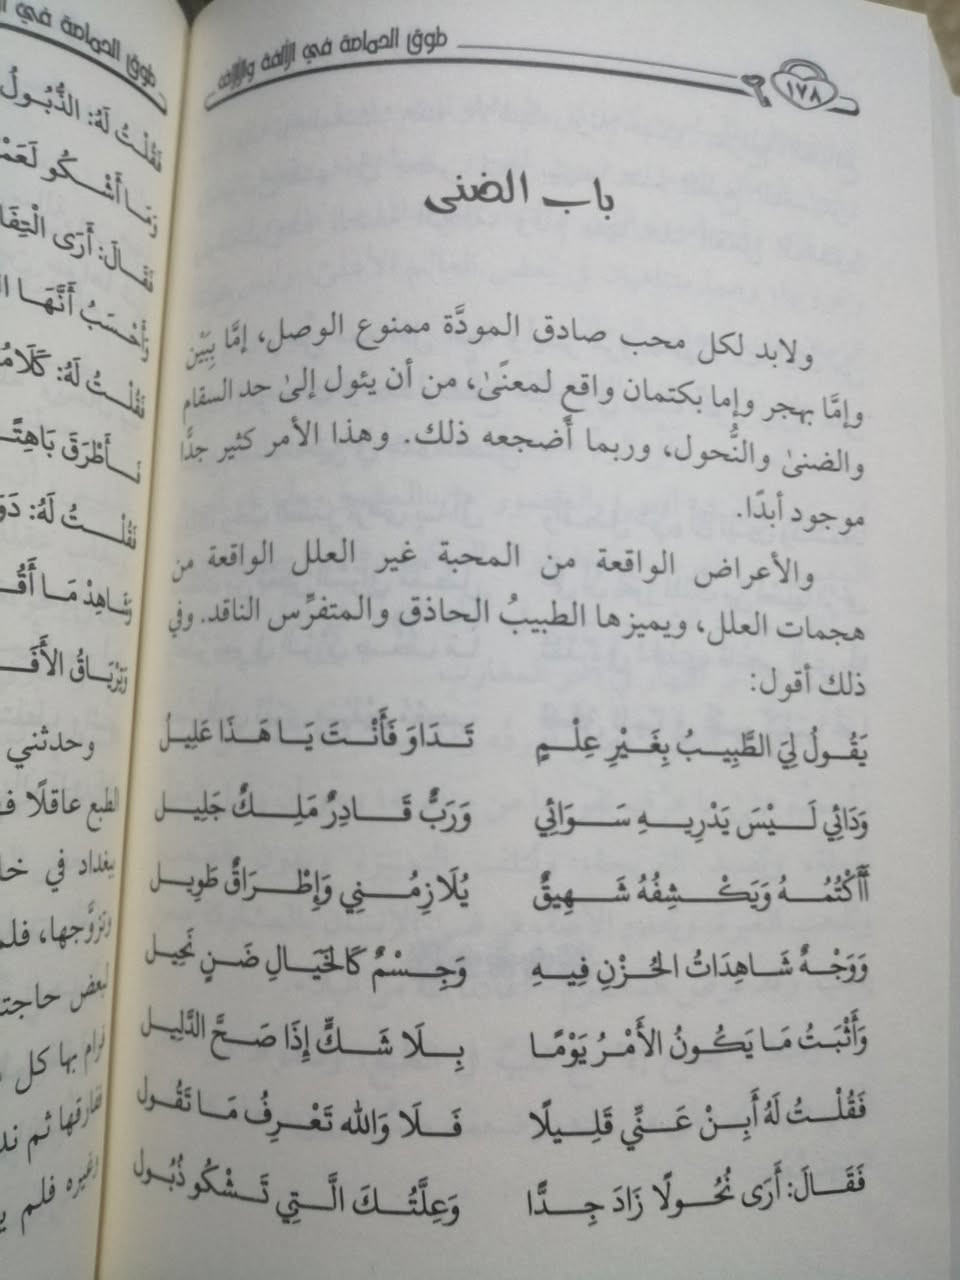 طوق الحمامة في الألفة والألاف
١٧٨
باب الضنى
ولابد لكل محب صادق المودَّة ممنوع الوصل، إمَّا بِبَيْنٍ
وإمَّا بهجر وإما بكتمان واقع لمعنًىٰ، من أن يئول إلىٰ حد السقام
والضنىٰ والنُّحول، وربما أضجعه ذلك. وهذا الأمر كثير جدًّا
موجود أبدًا.
والأعراض الواقعة من المحبة غير العلل الواقعة من
هجمات العلل، ويميزها الطبيبُ الحاذق والمتفرِّس الناقد. وفي
ذلك أقول:
يَقُولُ لِيَ الطَّبِيبُ بِغَيْرِ عِلْمٍ تَدَاوَ فَأَنْتَ يَا هَذَا عَلِيلُ
وَدَائِي لَيْسَ يَدْرِيهِ سَوَائِي وَرَبٌّ قَادِرٌ مَلِكٌ جَلِيل
أَأَكْتُمُهُ وَيَكْشِفُهُ شَهِيقٌ يُلَازِمُنِي وَإِطْرَاقٌ طَوِيل
وَوَجْهٌ شَاهِدَاتُ الحُزْنِ فِيهِ وَجِسْمٌ كَالخَيَالِ ضَنٍ نَحِيل
وَأَثْبَتُ مَا يَكُونُ الأَمْرُ يَوْمًا بِلَا شَكٍّ إِذَا صَحَّ الدَّلِيل
فَقُلْتُ لَهُ أَبِنْ عَنِّي قَلِيلًا فَلَا وَالله تَعْرِفُ مَا تَقُول
فَقَالَ: أَرَى نُحُولًا زَادَ جِدًّا وَعِلَّتُكَ الَّتِي تَشْكُو ذُبُول
طوق الحمامة في
فَقُلْتُ لَهُ: الذُّبُولُ
وَمَا أَشْكُو لَعَمْ
فَقَالَ: أَرَى الْتِفَا
وَأَحْسَبُ أَنَّهَا
فَقُلْتُ لَهُ: كَلَامُ
فَأَطْرَقَ بَاهِتًا
فَقُلْتُ لَهُ: دَوَ
وَشَاهِدُ مَا أَقُ
وَتِرْيَاقُ الأَفَ
وحدثني
الطبع عاقلًا ف
بغداد في خا
وتزوَّجها، فلم
لبعض حاجت
فرام بها كل
ففارقها ثم ند
وغيره فلم ي